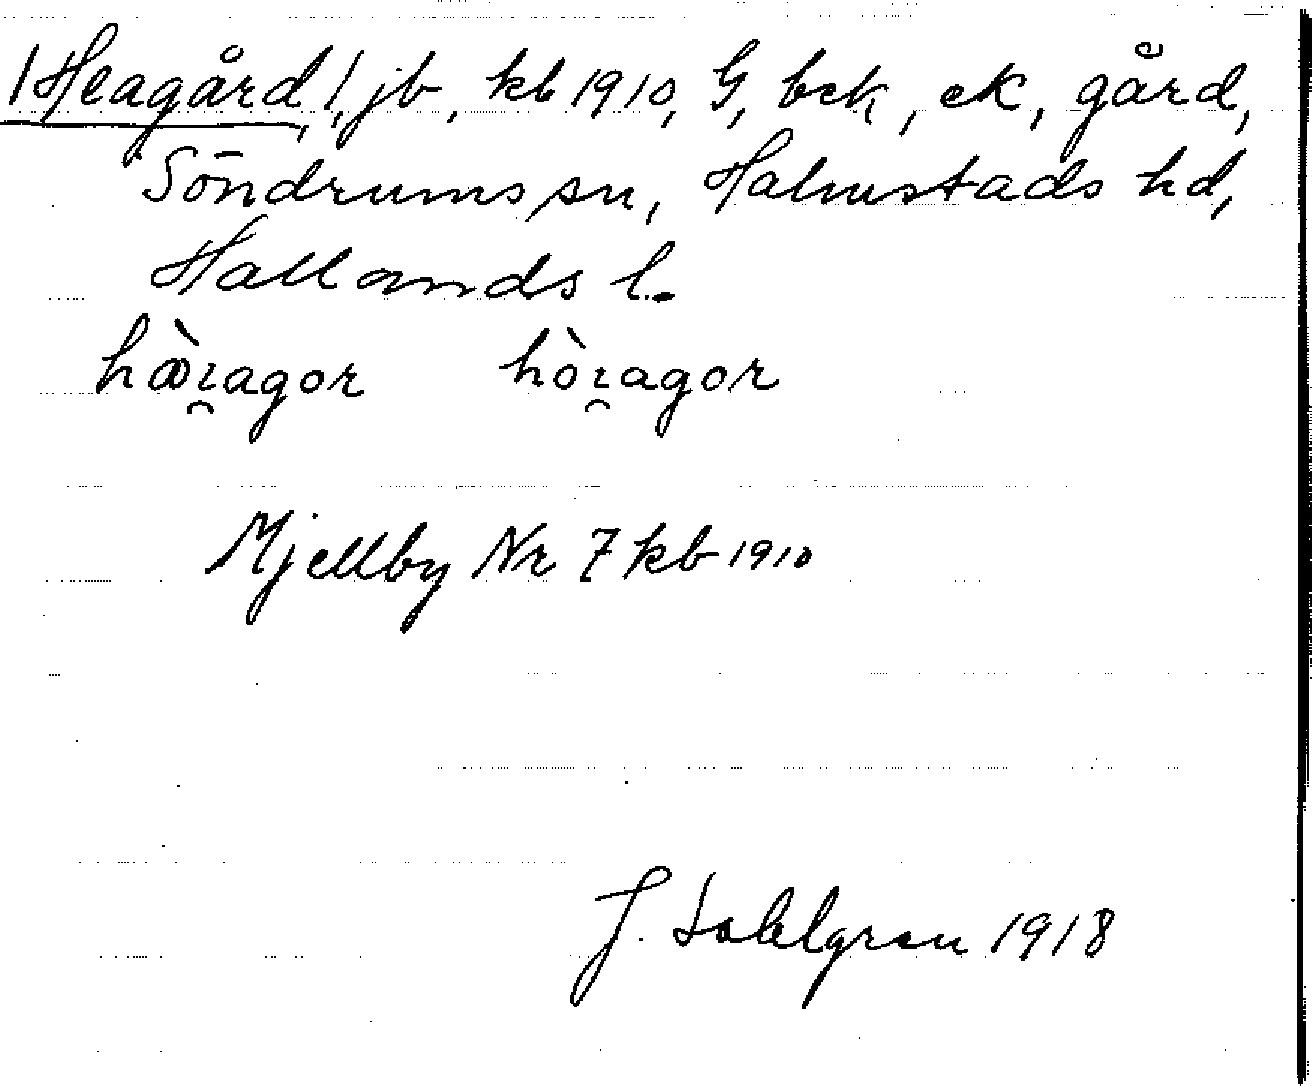 /Heagård,/, jb, kb 1910, G, bek, ek, gård,
Söndrums sn, Halmstads hd,
Hallands l.
hæ̀ı̯agor hòı̯agor
Mjellby Nr 7 kb 1910
J. Sahlgren 1918